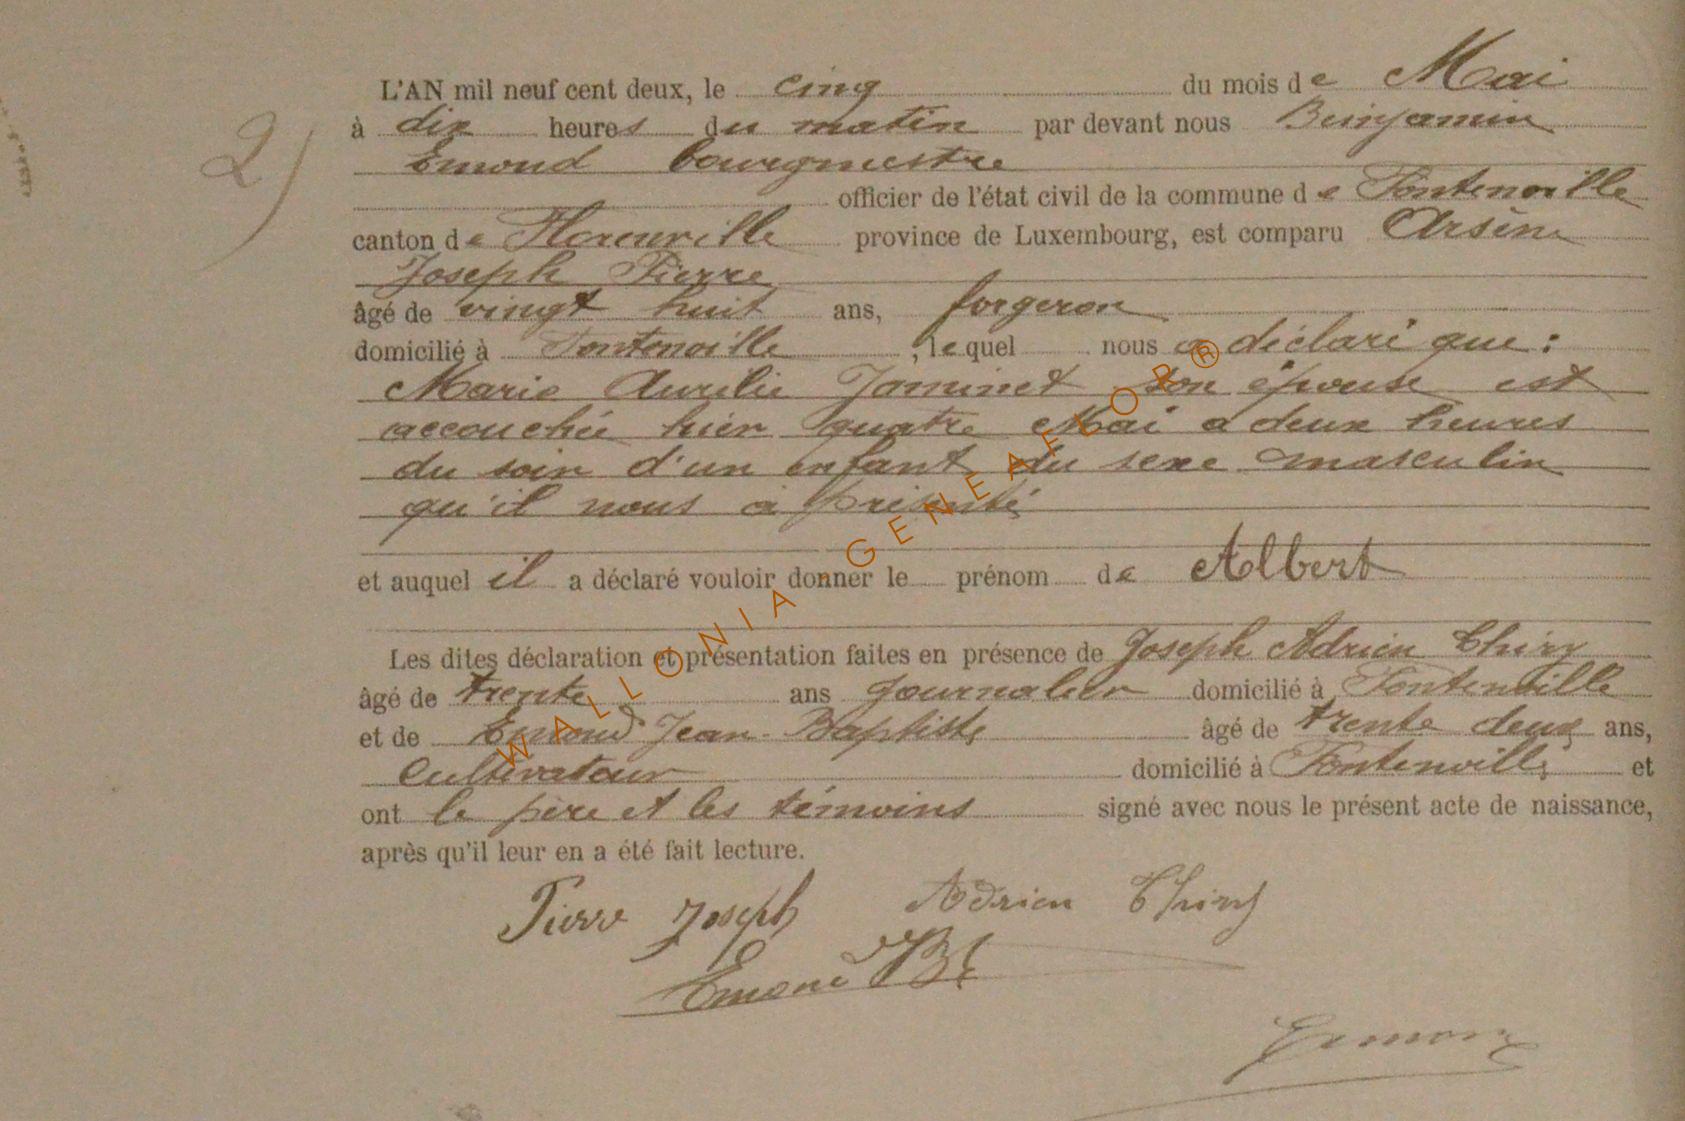 L'AN mil neuf cent deux, le cinq du mois de Mai
2)
à dix heures du matin par devant nous Benjamin
Emond bourgmestre
officier de l'état civil de la commune de Fontenoille
canton de Florenville province de Luxembourg, est comparu Arsène
Joseph Pierre
âgé de vingt huit ans, forgeron
domicilié à Fontenoille, lequel nous a déclaré que :
Marie Aurélie Jaminet son épouse est
accouchée hier quatre Mai a deux heures
du soir d'un enfant du sexe masculin
qu'il nous a présenté
et auquel il a déclaré vouloir donner le prénom de Albert
Les dites déclaration et présentation faites en présence de Joseph Adrien Thiry
âgé de trente ans journalier domicilié à Fontenoille
et de Emond Jean-Baptiste âgé de trente deux ans,
Cultivateur domicilié à Fontenoille et
ont le père et les témoins signé avec nous le présent acte de naissance,
après qu'il leur en a été fait lecture.
Pierre Joseph Adrien Thiry
Emond JB
Emond
WALLONIA GENEAFLOR®